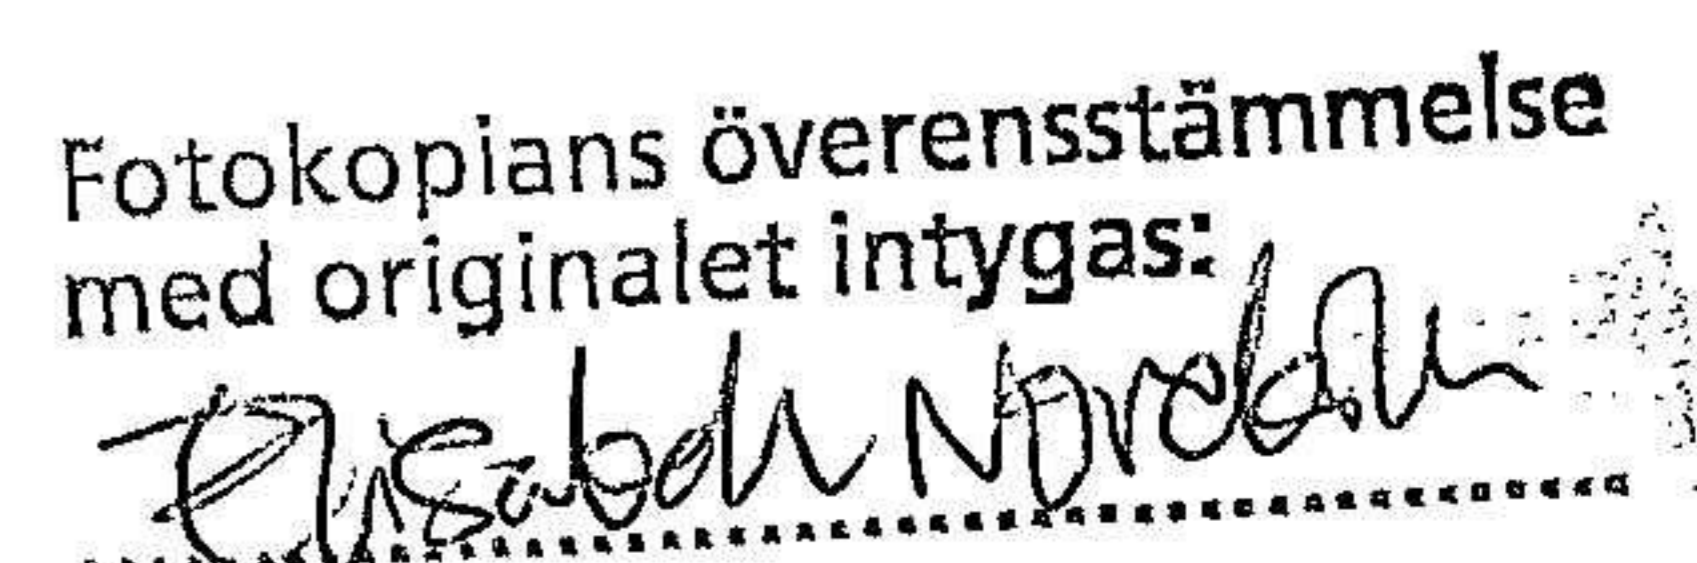 Fotokopians överensstämmelse
med originalet intygas:
Elisabeth